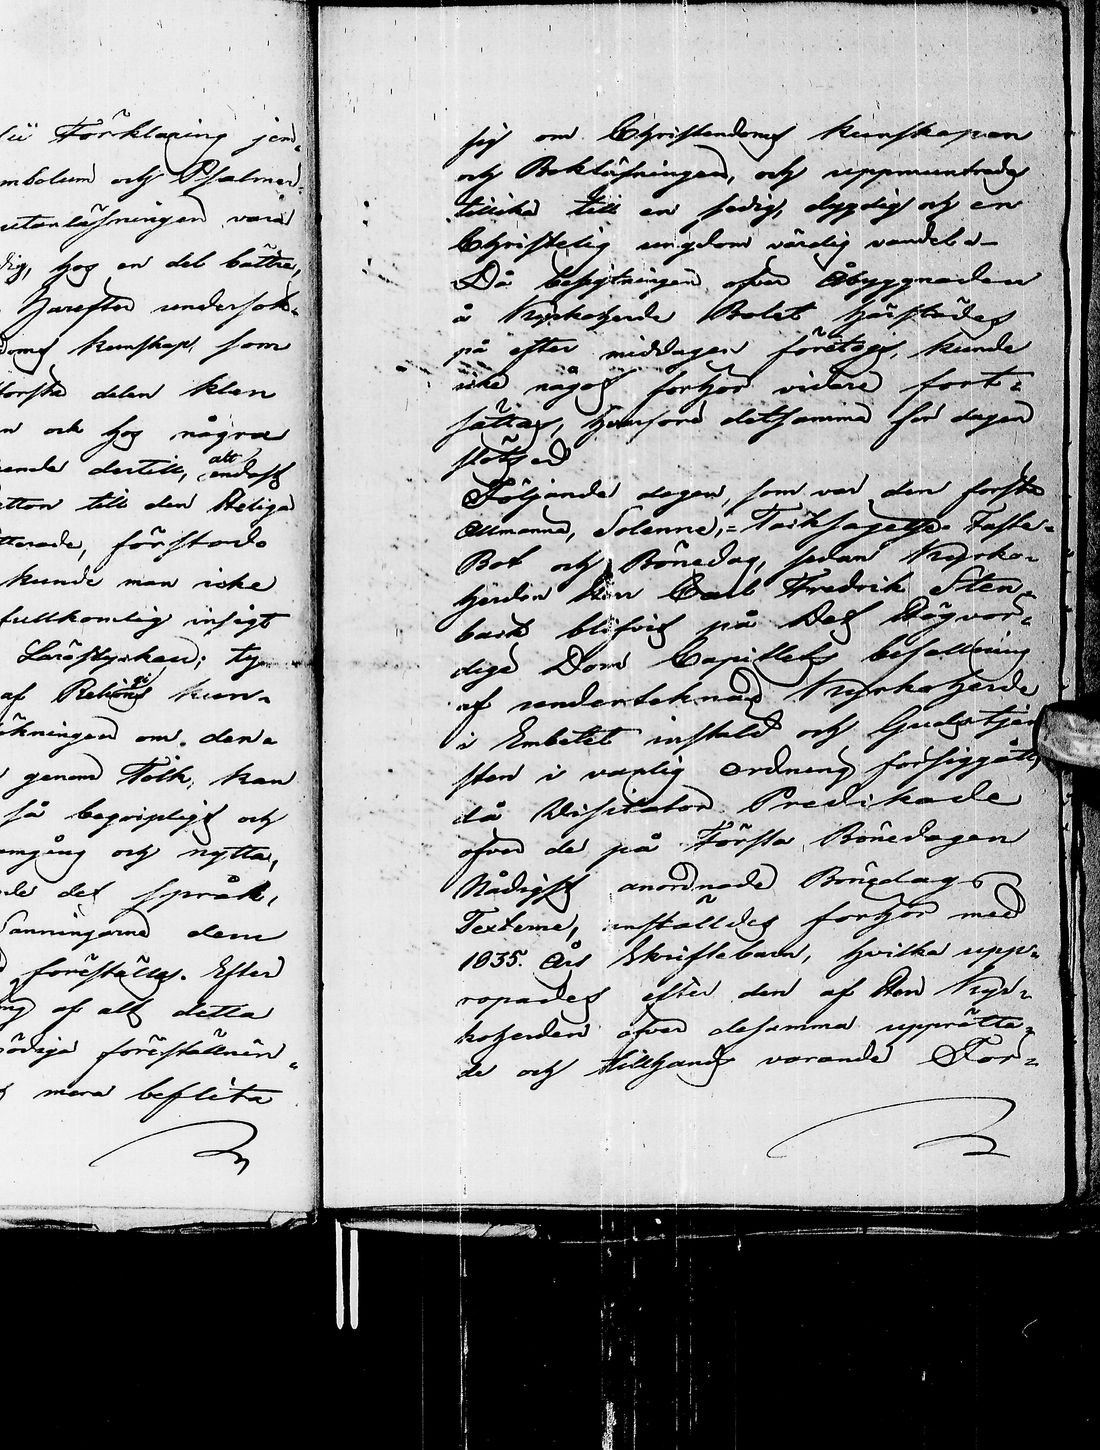 Förklaring jem-
mbolum och Psalmer-
utanläsningen vara
dig, hos en del bättre,
Harefter undersök-
doms kunskap, som
första delen klen
n och hos några
ende dertill, att endast
etton till den Heliga
tterade, förstod
kunde man icke
fullkomlig insigt
Lärostycken; ty
af Religions kun-
ökningen om den
genom Tolk, kan
så begripligt och
omgång och nytta,
de det språk,
Sanningarne dem
föreställes. Efter
ng af alt detta
ödiga föreställnin-
mera beflita
sig om Christendoms kunskapen
och Bokläsningen, och uppmuntrades
tillika till en sedig, dygdig och en
Christelig ungdom värdig vandel.
Då besigtningen öfver Åbyggnaden
å Kyrkoherde Bolet härstädes
på efter middagen företogs, kunde
icke något förhör vidare fort-
sättas, hvarföre detsamma för dagen
slöts ed
Följande dagen, som var den första
Allmänna, Solenne, Tacksägelse- Faste-
Bot och Bönedag, sedan Kyrko-
herden Herr Carl Fredrik Sten-
back blifvit på Det Högvör-
dige Dom Capitlets befallning
af undertecknad Kyrkoherde
i Embetet instäld och Gudstjen-
sten i vanlig ordning försiggått,
då Visitator Predikade
öfver de på Första Bönedagen
Nådigst anordnade Bönedags
Texterne, instäldes förhör med
1835. Års Skriftebarn, hvilka upp-
ropades efter den af Herr Kyr-
koherden öfver desamma upprätta-
de och tillhands varande För-